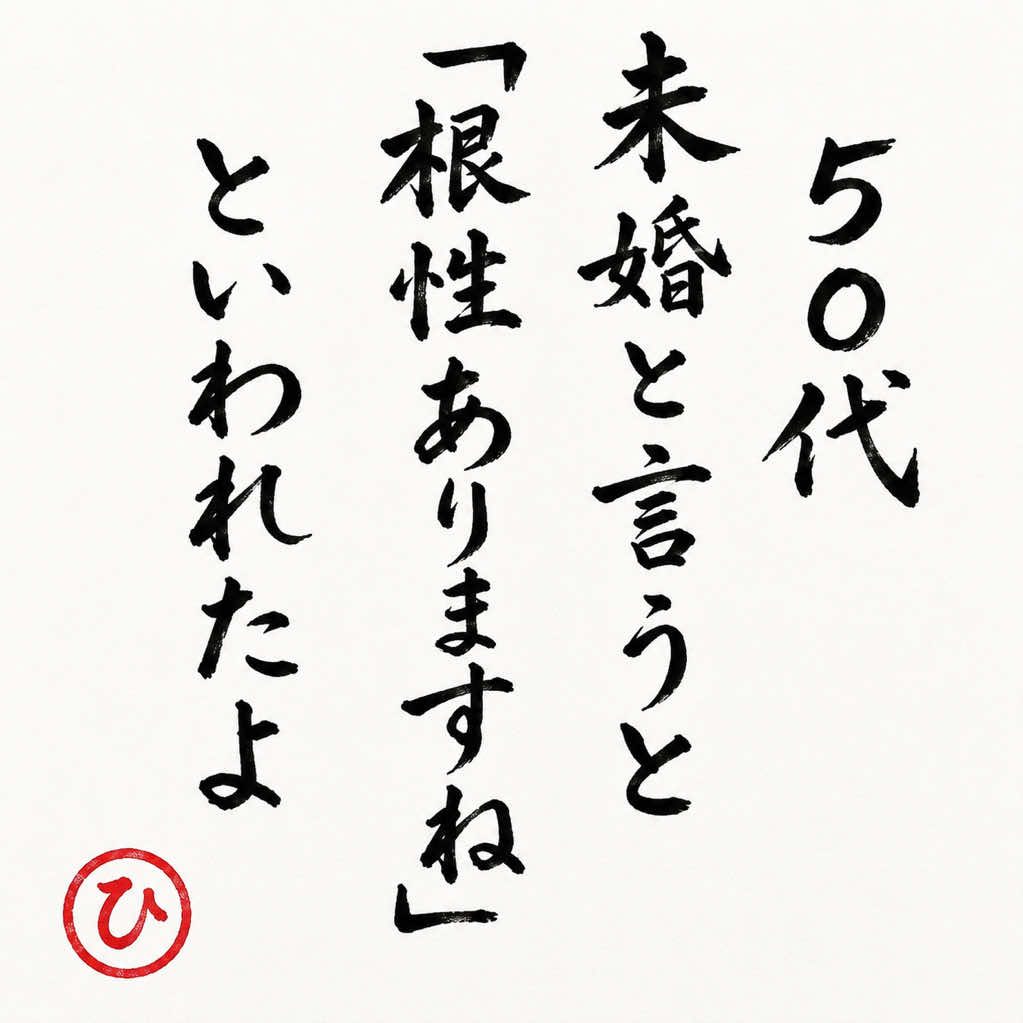 ５０代
未婚と言うと
「根性ありますね」
といわれたよ
ひ